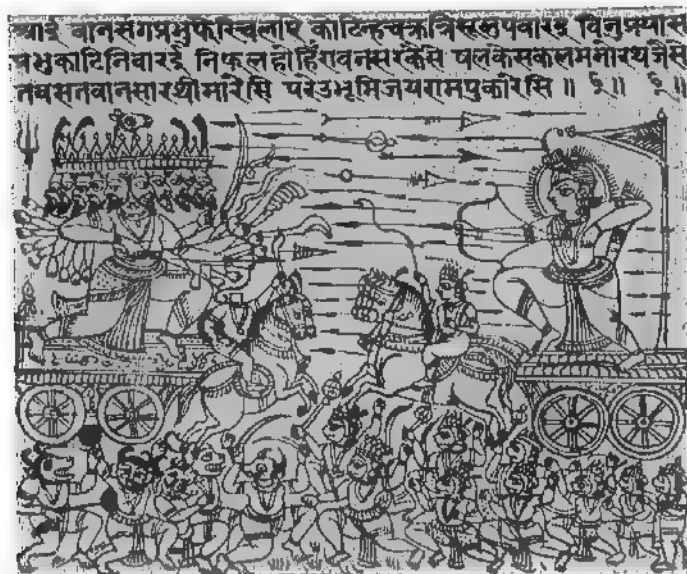 वानसंगप्रभुफेरिचलाए कोटिन्हचक्रत्रिसूलपवारइ विनुप्रयास
प्रभुकाटिनिवारई निफलहोहिंरावनसरकैसे षलकेसकलमनोरथजैसे
तवसतवानसारथीमारेसि परेउभूमिजयरामपुकारेसि ॥ ६॥ ६॥